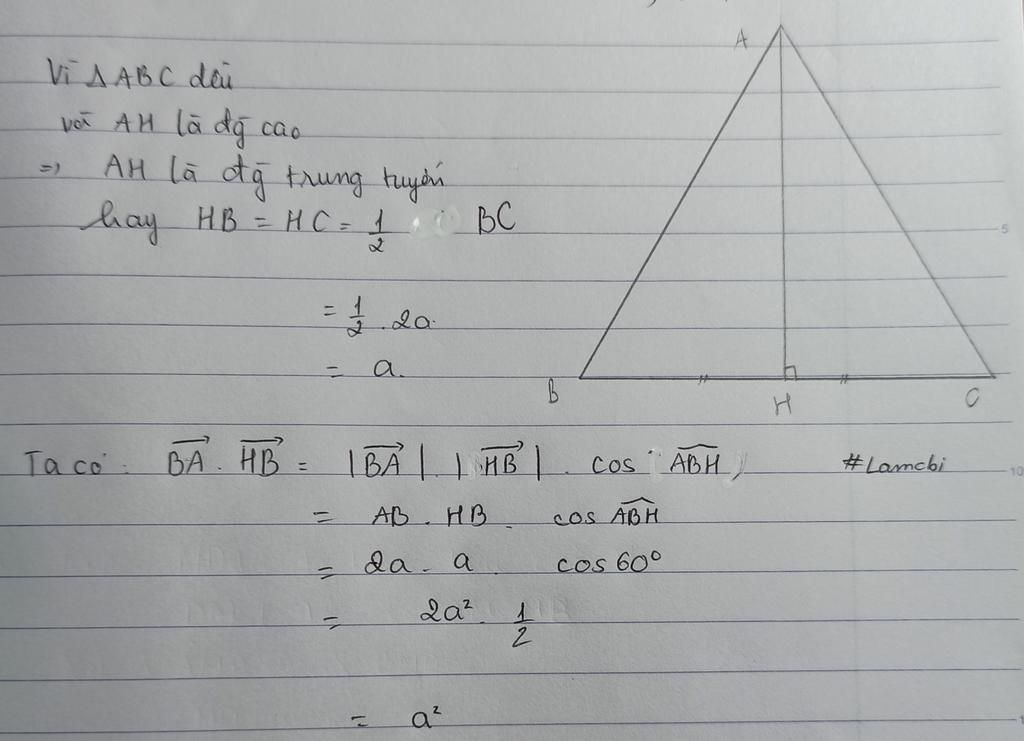 Vì ΔABC đều
với AH là đg̃ cao
=> AH là đg̃ trung tuyến
hay HB = HC = 1/2 BC
= 1/2 . 2a
= a.
A
B
H
C
Ta có: \overrightarrow{BA} . \overrightarrow{HB} = |\overrightarrow{BA}| . |\overrightarrow{HB}| . cos \widehat{ABH}
#Lamcbi
= AB . HB . cos \widehat{ABH}
= 2a . a cos 60°
= 2a² . 1/2
= a²
5
10